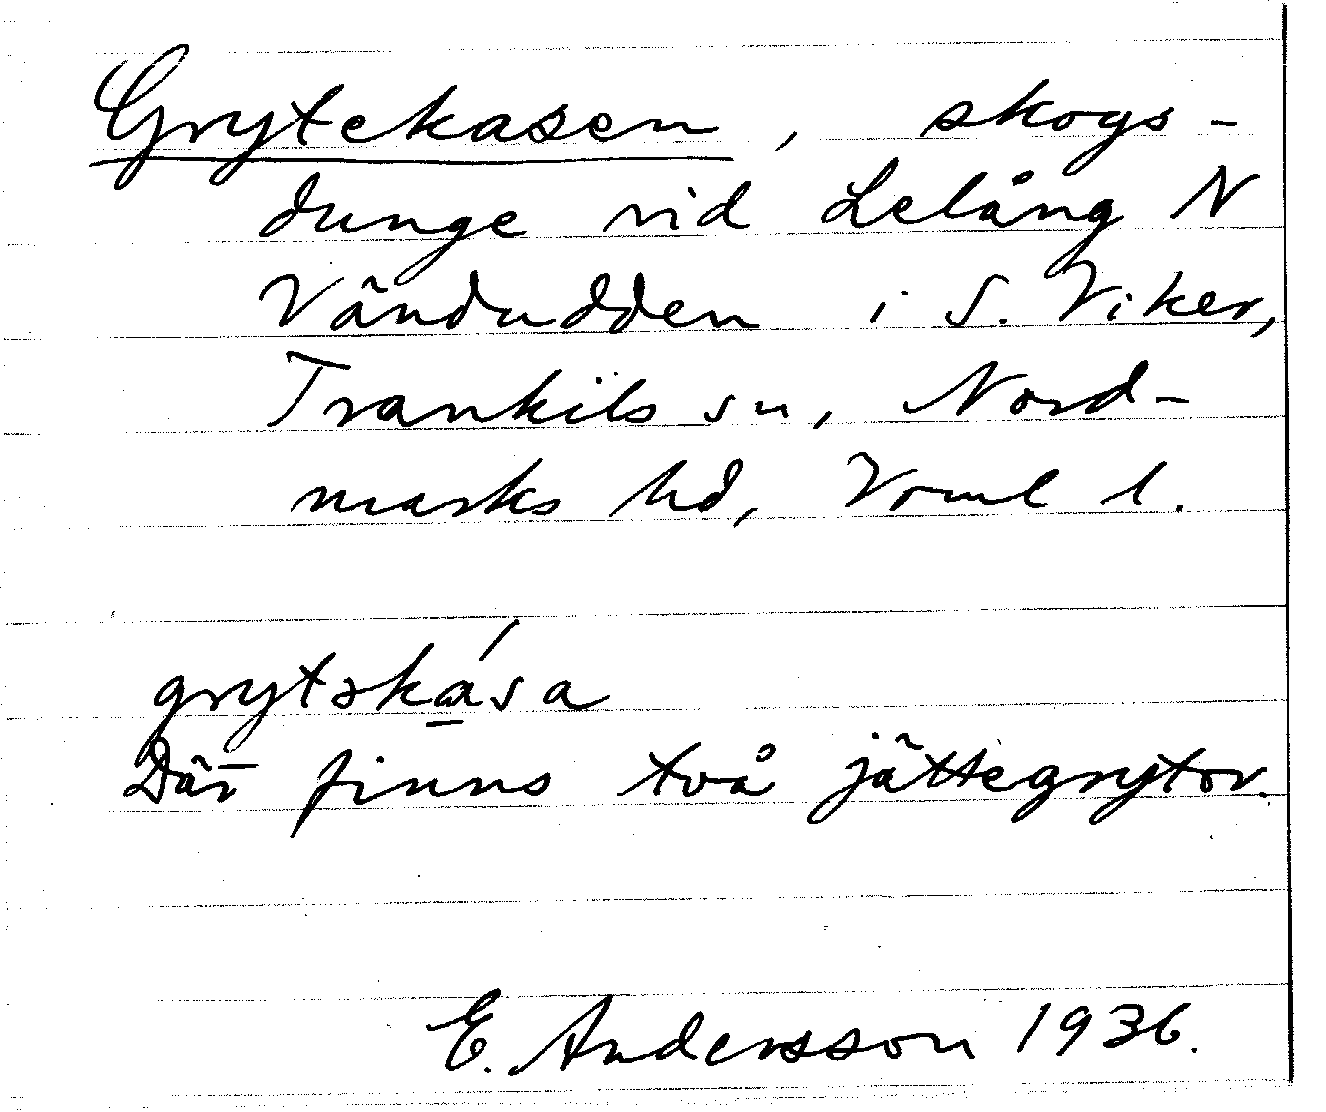 Grytekasen, skogs-
dunge vid Lelång N
Vändudden i S. Viker,
Trankils sn, Nord-
marks hd, Vrml l.
grytəkása
Där finns två jättegrytor.
E. Andersson 1936.